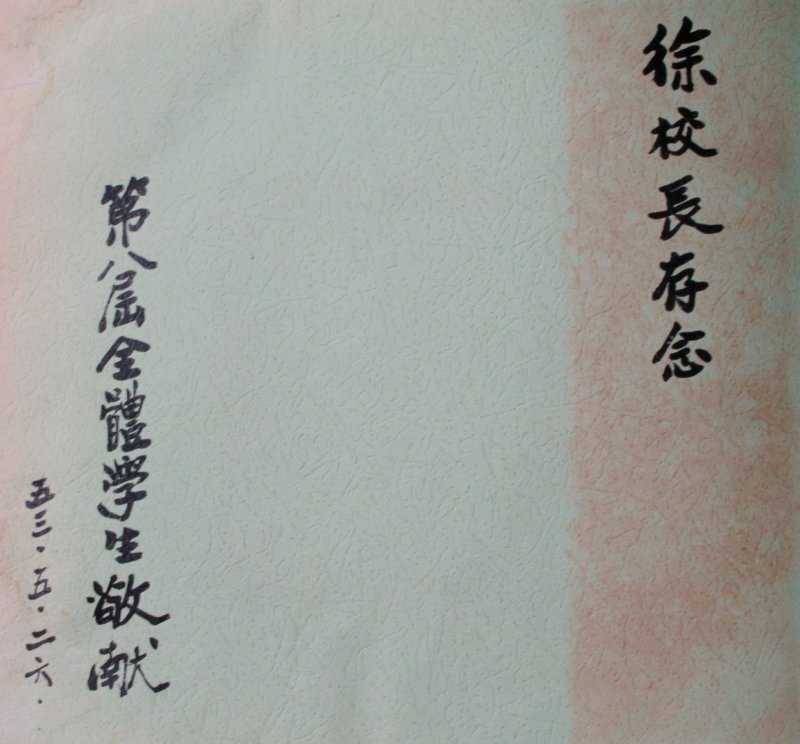 徐校長存念
第八屆全體學生敬献
五三·五·二六·